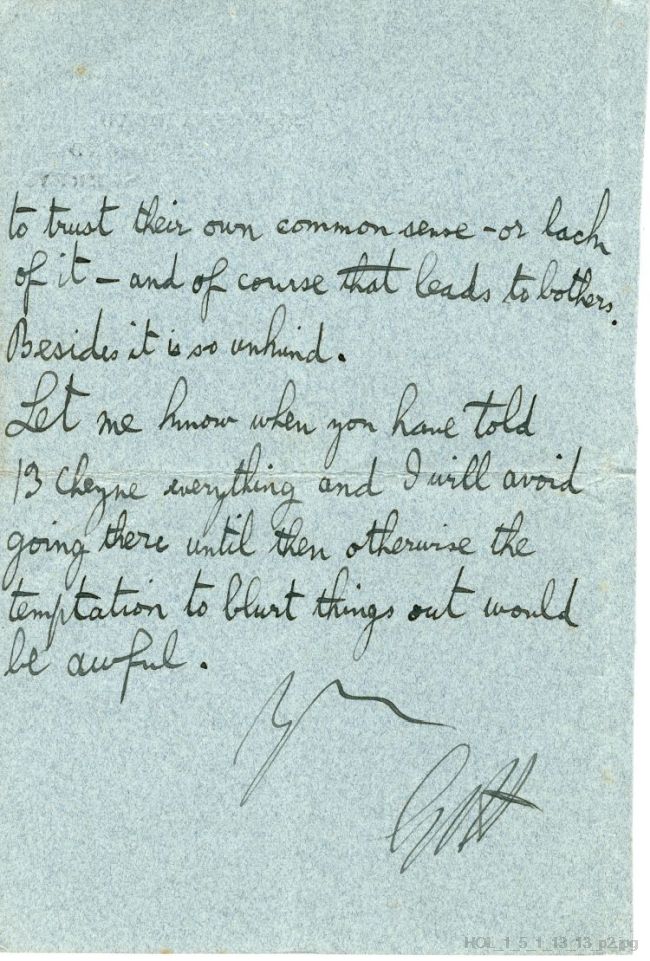 to trust their own common sense - or lack
of it - and of course that leads to bothers.
Besides it is so unkind.
Let me know when you have told
13 Cheyne everything and I will avoid
going there until then otherwise the
temptation to blurt things out would
be awful.
HOL_1_5_1_13_13_p2.jpg